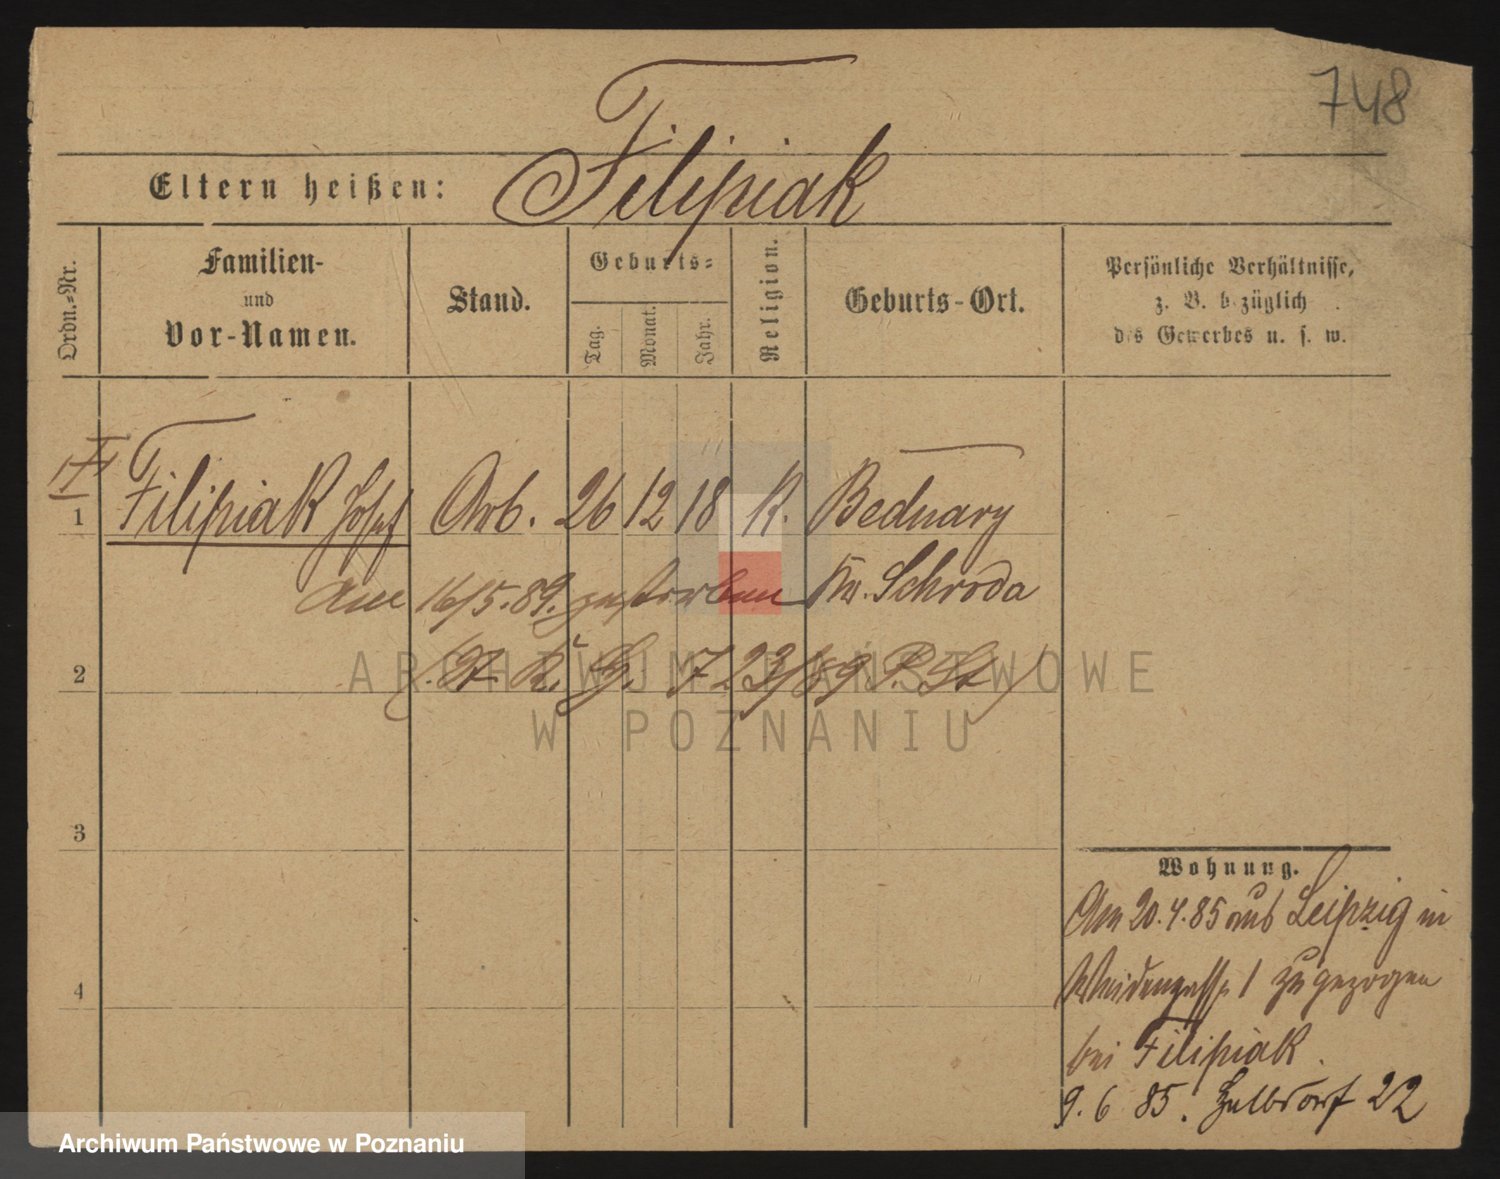 748
Filipiak
Eltern heißen:
Ordn.-Nr.
Familien-
und
Vor-Namen.
Stand.
Geburts-
Tag.
Monat.
Jahr.
Religion.
Geburts-Ort.
Persönliche Verhältnisse,
z. B. bezüglich
des Gewerbes u. s. w.
1 Filipiak Josef Arb. 26 12 18 K. Bednary
Am 16/5.89. gestorben Kr. Schroda
2 (St. R. 723/89 P. St.)
3
4
Wohnung.
Am 20.4.85 aus Leipzig in
Weidengasse 1 zugezogen
bei Filipiak.
9.6.85. Halbdorf 22
ARCHIWUM PAŃSTWOWE
W POZNANIU
Archiwum Państwowe w Poznaniu